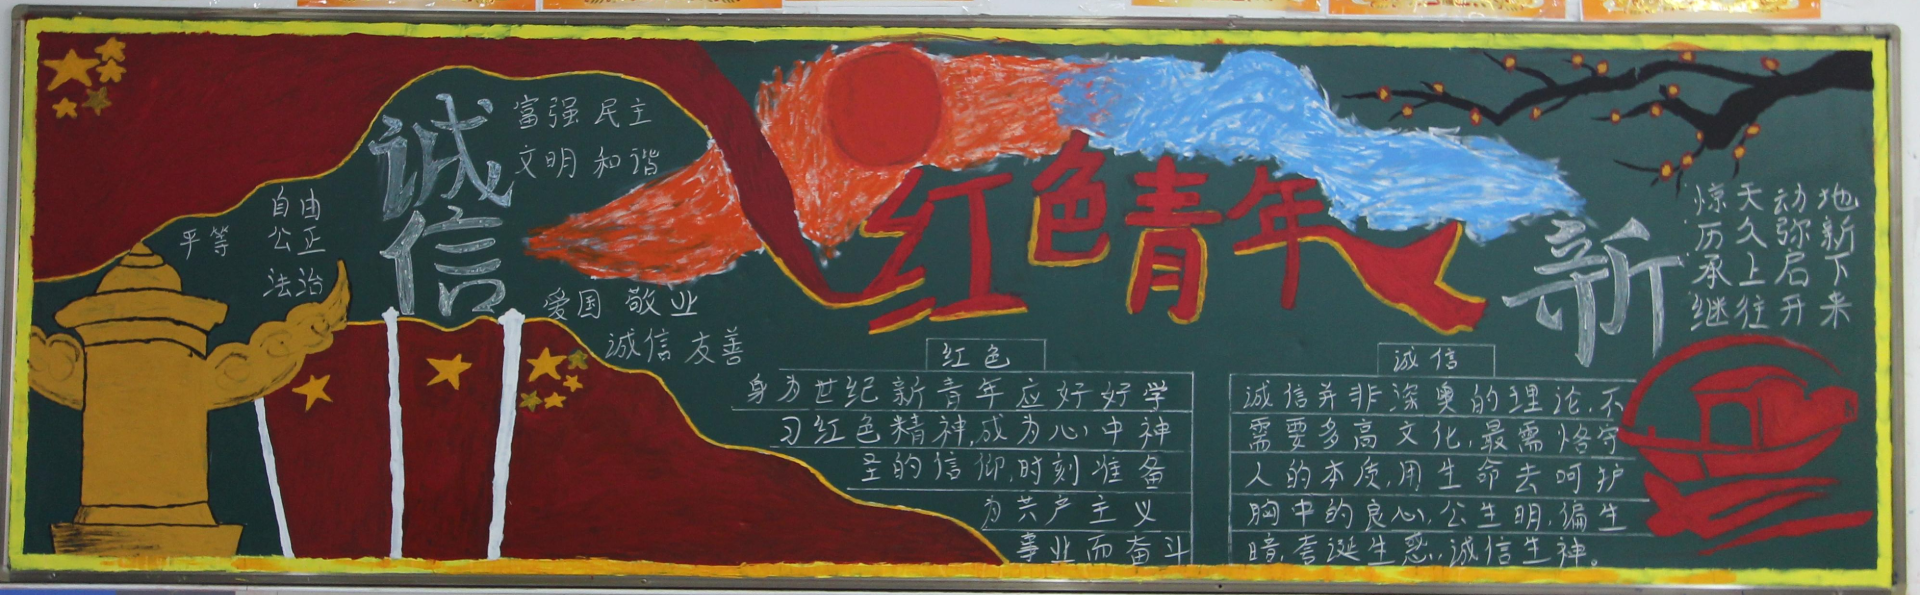 诚信
富强 民主
文明 和谐
自由
平等 公正
法治
爱国 敬业
诚信 友善
红色青年
新
惊天动地
历久弥新
承上启下
继往开来
红色
身为世纪新青年应好好学
习红色精神,成为心中神
圣的信仰,时刻准备
为共产主义
事业而奋斗
诚信
诚信并非深奥的理论,不
需要多高文化,最需恪守
人的本质,用生命去呵护
胸中的良心,公生明,偏生
暗,夸诞生惑,诚信生神。